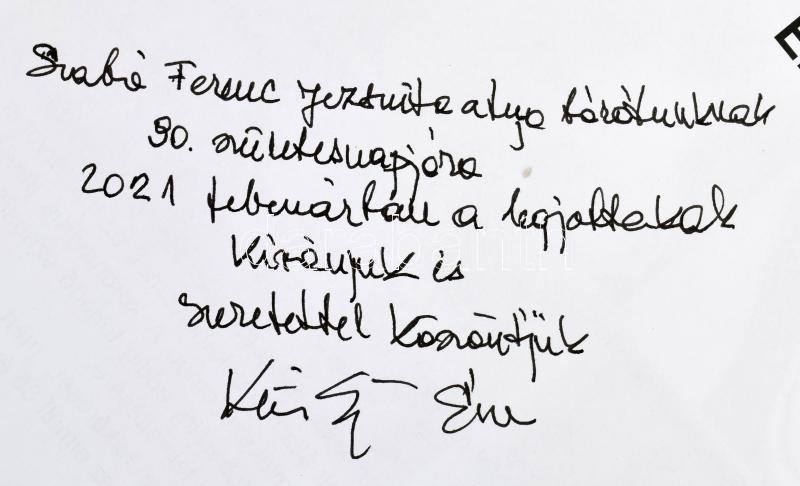 Szabó Ferenc jezsuita atya barátunknak
90. születésnapjára
2021 februárban a legjobbakat
kívánjuk és
szeretettel köszöntjük